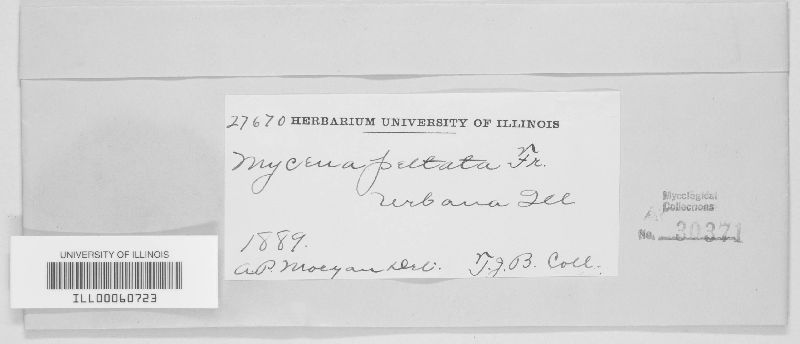 27670 HERBARIUM UNIVERSITY OF ILLINOIS
Mycena peltata Fr.
Urbana Ill
1889.
A.P. Morgan Det. T.J.B. Coll.
Mycological
Collections
No. 30371
UNIVERSITY OF ILLINOIS
ILL00060723